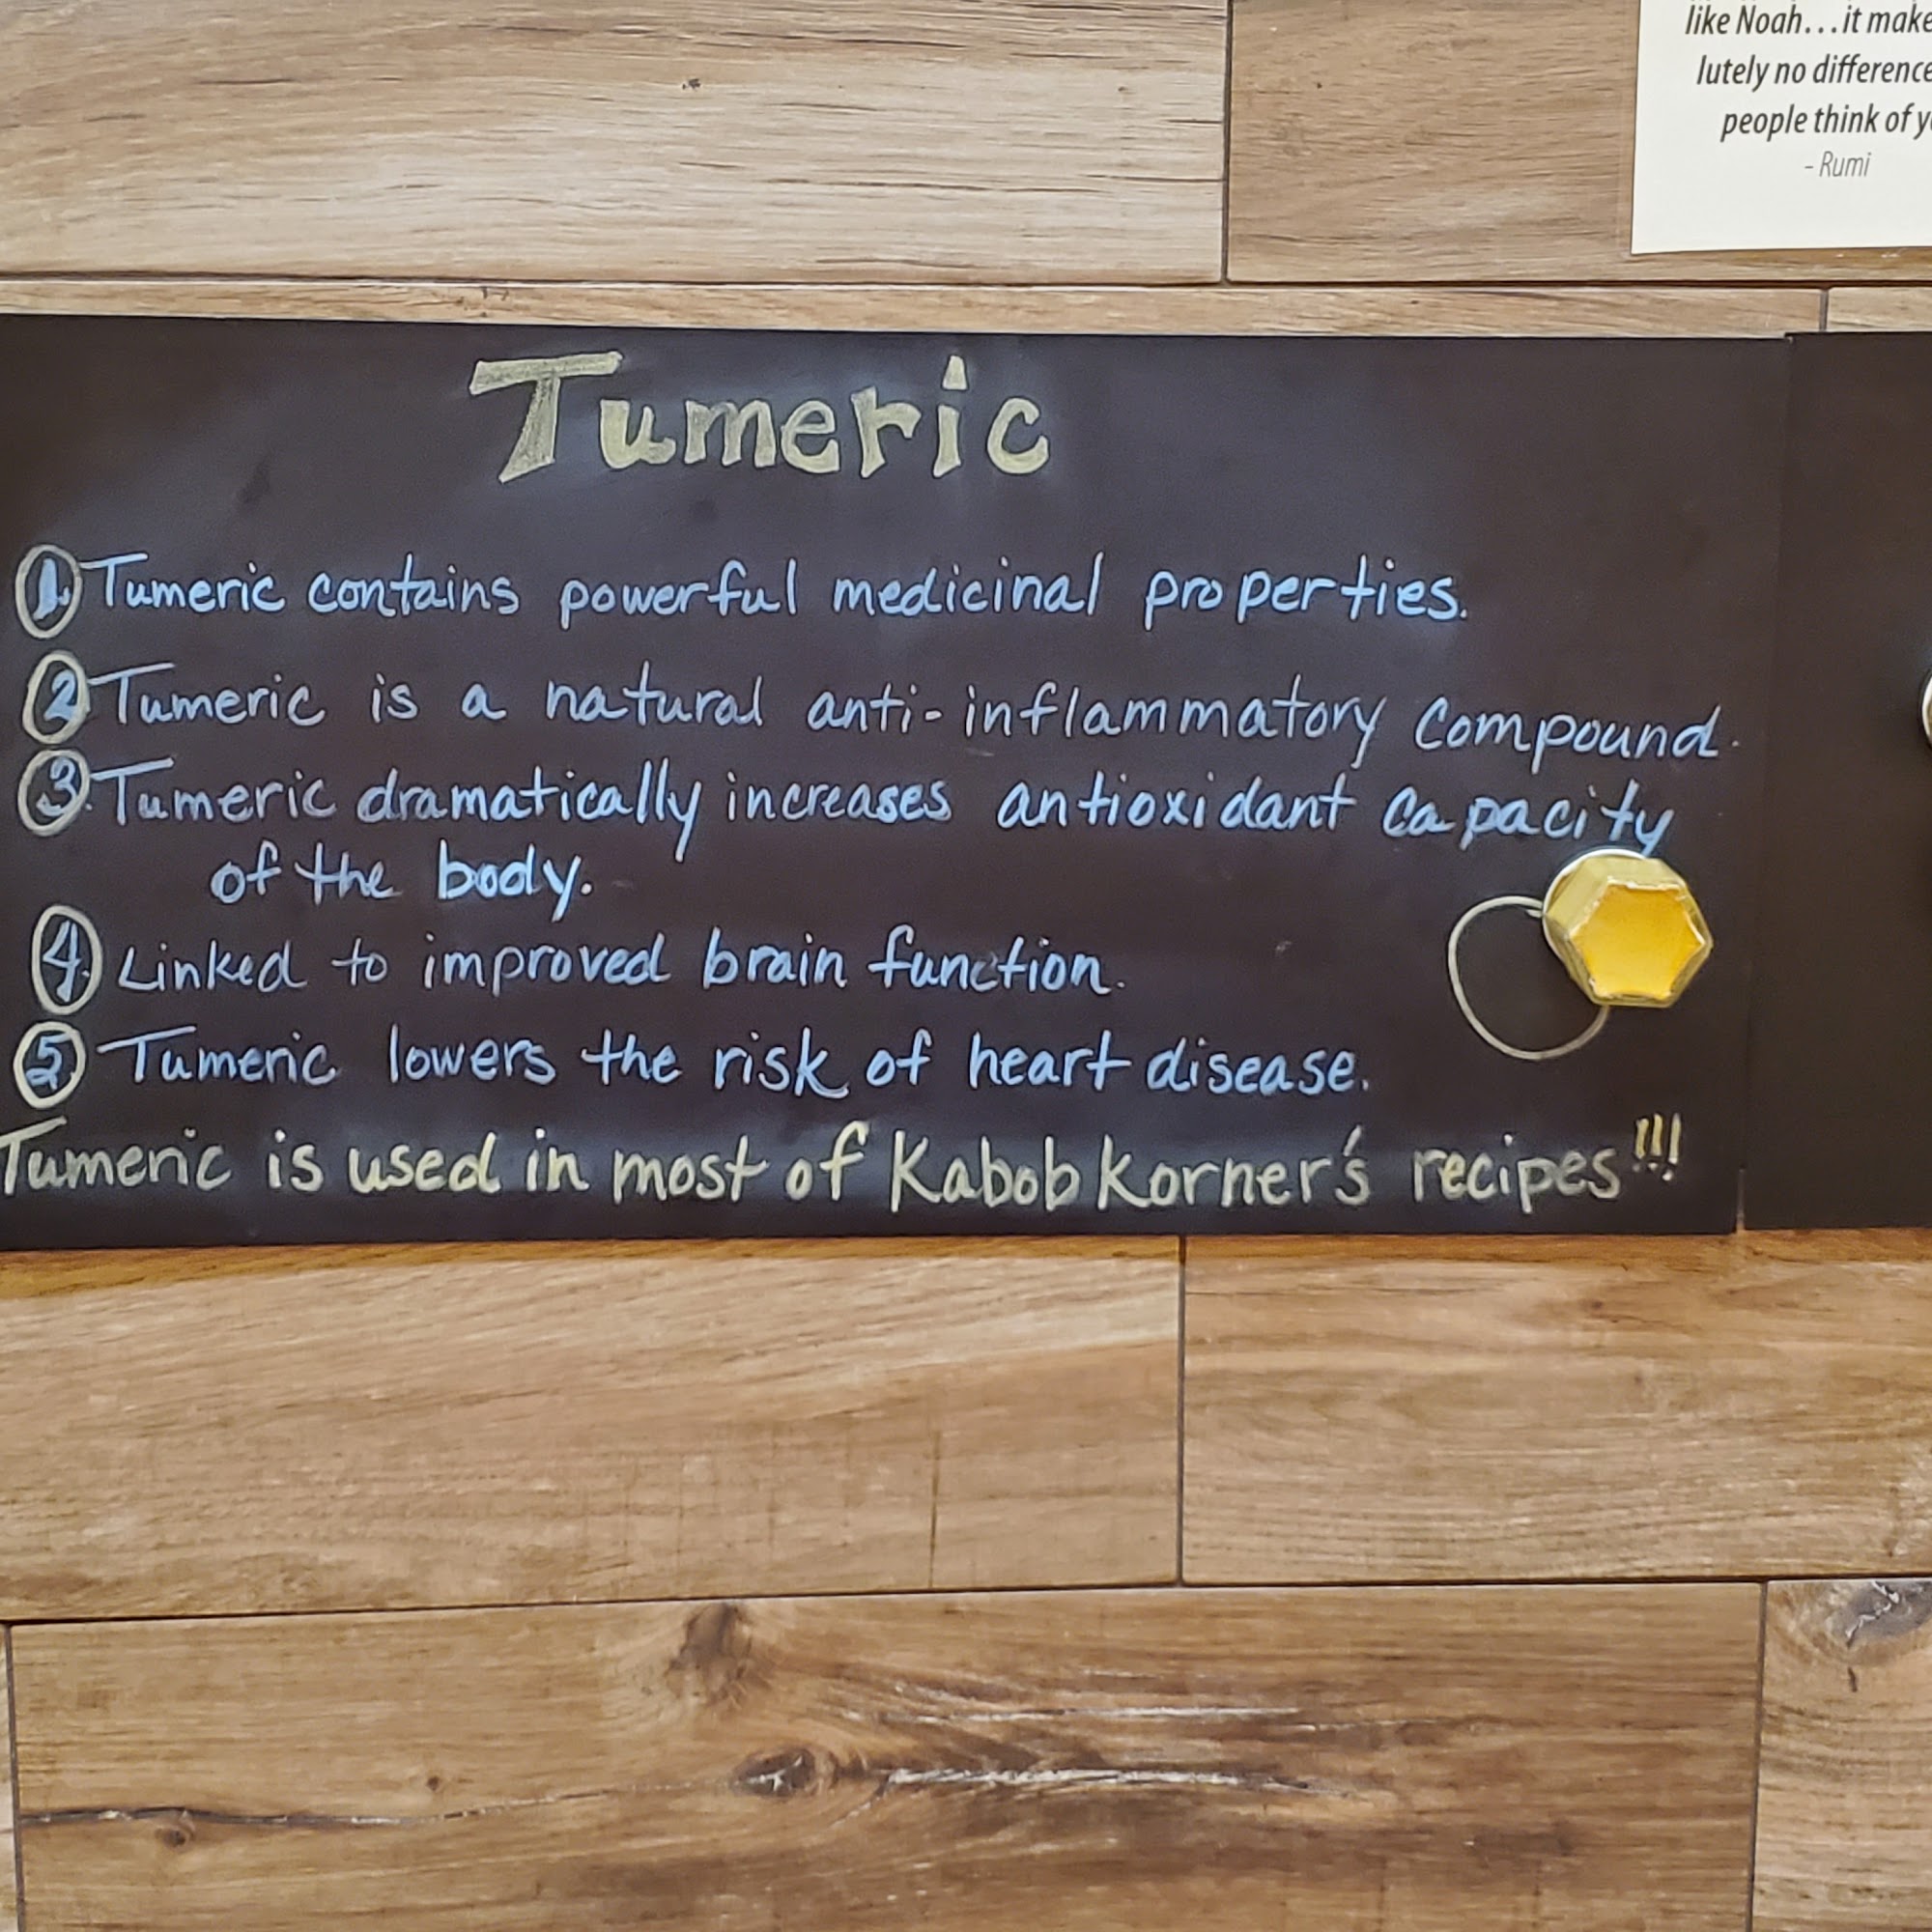 like Noah...it make
lutely no difference
people think of y
- Rumi
Tumeric
1. Tumeric contains powerful medicinal properties.
2. Tumeric is a natural anti-inflammatory compound.
3. Tumeric dramatically increases antioxidant capacity
of the body.
4. Linked to improved brain function.
5. Tumeric lowers the risk of heart disease.
Tumeric is used in most of Kabob Korner's recipes!!!